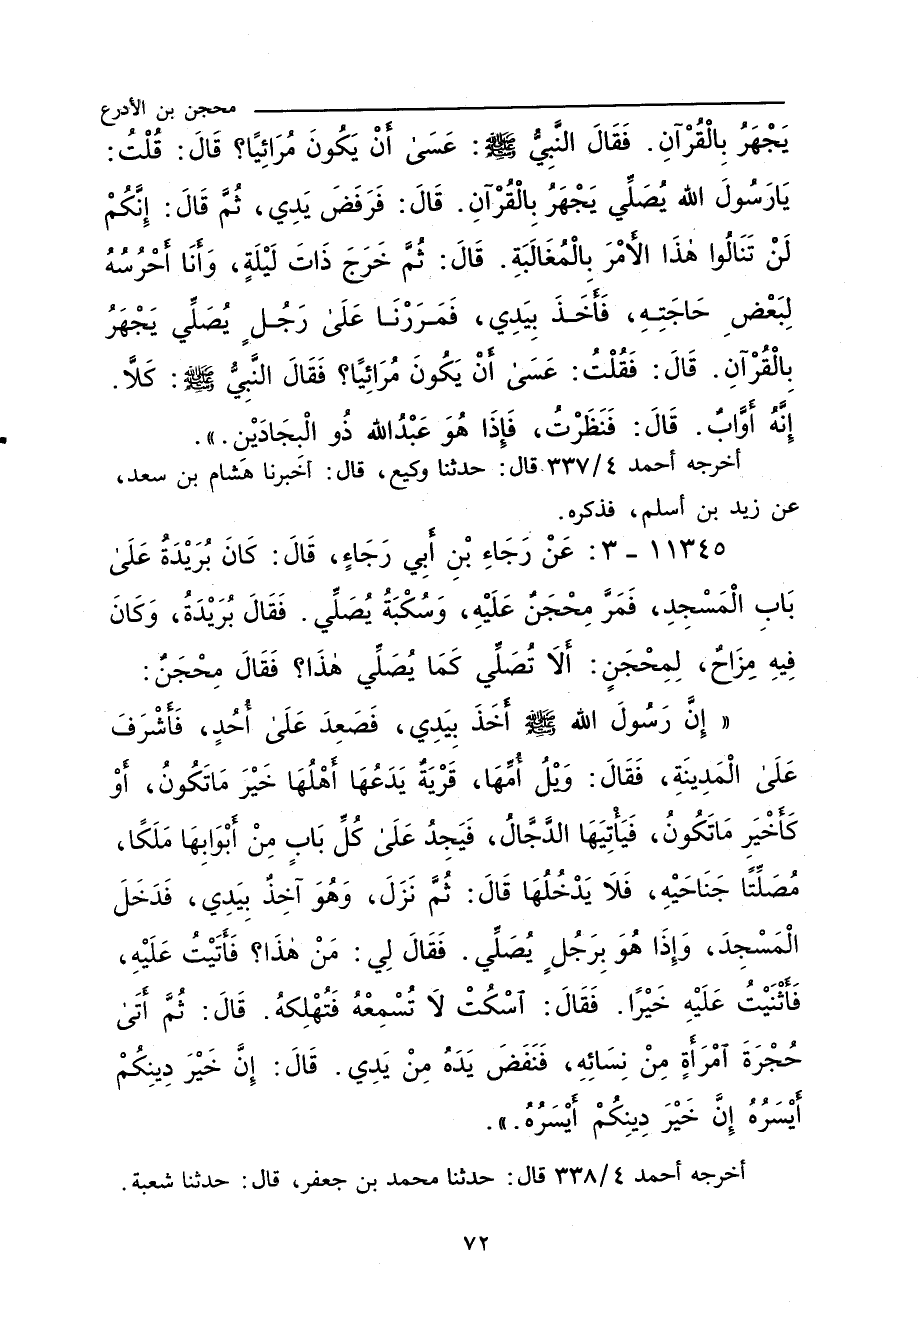 محجن بن الأدرع
يَجْهَرُ بِالْقُرْآنِ. فَقَالَ النَّبِيُّ ﷺ: عَسَىٰ أَنْ يَكُونَ مُرَائِيًا؟ قَالَ: قُلْتُ:
يَارَسُولَ الله يُصَلِّي يَجْهَرُ بِالْقُرْآنِ. قَالَ: فَرَفَضَ يَدِي، ثُمَّ قَالَ: إِنَّكُمْ
لَنْ تَنَالُوا هٰذَا الأَمْرَ بِالْمُغَالَبَةِ. قَالَ: ثُمَّ خَرَجَ ذَاتَ لَيْلَةٍ، وَأَنَا أَحْرُسُهُ
لِبَعْضِ حَاجَتِهِ، فَأَخَذَ بِيَدِي، فَمَرَرْنَا عَلَىٰ رَجُلٍ يُصَلِّي يَجْهَرُ
بِالْقُرْآنِ. قَالَ: فَقُلْتُ: عَسَىٰ أَنْ يَكُونَ مُرَائِيًا؟ فَقَالَ النَّبِيُّ ﷺ: كَلَّا.
إِنَّهُ أَوَّابٌ. قَالَ: فَنَظَرْتُ، فَإِذَا هُوَ عَبْدُالله ذُو الْبِجَادَيْنِ.».
أخرجه أحمد ٤/٣٣٧ قال: حدثنا وكيع، قال: أخبرنا هشام بن سعد،
عن زيد بن أسلم، فذكره.
١١٣٤٥ - ٣: عَنْ رَجَاءِ بْنِ أَبِي رَجَاءٍ، قَالَ: كَانَ بُرَيْدَةُ عَلَىٰ
بَابِ الْمَسْجِدِ، فَمَرَّ مِحْجَنٌ عَلَيْهِ، وَسُكْبَةُ يُصَلِّي. فَقَالَ بُرَيْدَةُ، وَكَانَ
فِيهِ مِزَاحٌ، لِمِحْجَنٍ: أَلَا تُصَلِّي كَمَا يُصَلِّي هٰذَا؟ فَقَالَ مِحْجَنٌ:
« إِنَّ رَسُولَ الله ﷺ أَخَذَ بِيَدِي، فَصَعِدَ عَلَىٰ أُحُدٍ، فَأَشْرَفَ
عَلَىٰ الْمَدِينَةِ، فَقَالَ: وَيْلُ أُمِّهَا، قَرْيَةٌ يَدَعُهَا أَهْلُهَا خَيْرَ مَاتَكُونُ، أَوْ
كَأَخْيَرِ مَاتَكُونُ، فَيَأْتِيَهَا الدَّجَّالُ، فَيَجِدُ عَلَىٰ كُلِّ بَابٍ مِنْ أَبْوَابِهَا مَلَكًا،
مُصَلِّتًا جَنَاحَيْهِ، فَلَا يَدْخُلُهَا قَالَ: ثُمَّ نَزَلَ، وَهُوَ آخِذٌ بِيَدِي، فَدَخَلَ
الْمَسْجِدَ، وَإِذَا هُوَ بِرَجُلٍ يُصَلِّي. فَقَالَ لِي: مَنْ هٰذَا؟ فَأَتَيْتُ عَلَيْهِ،
فَأَثْنَيْتُ عَلَيْهِ خَيْرًا. فَقَالَ: ٱسْكُتْ لَا تُسْمِعْهُ فَتُهْلِكهُ. قَالَ: ثُمَّ أَتَىٰ
حُجْرَةَ ٱمْرَأَةٍ مِنْ نِسَائِهِ، فَنَفَضَ يَدَهُ مِنْ يَدِي. قَالَ: إِنَّ خَيْرَ دِينِكُمْ
أَيْسَرُهُ إِنَّ خَيْرَ دِينِكُمْ أَيْسَرُهُ.».
أخرجه أحمد ٤/٣٣٨ قال: حدثنا محمد بن جعفر، قال: حدثنا شعبة.
٧٢